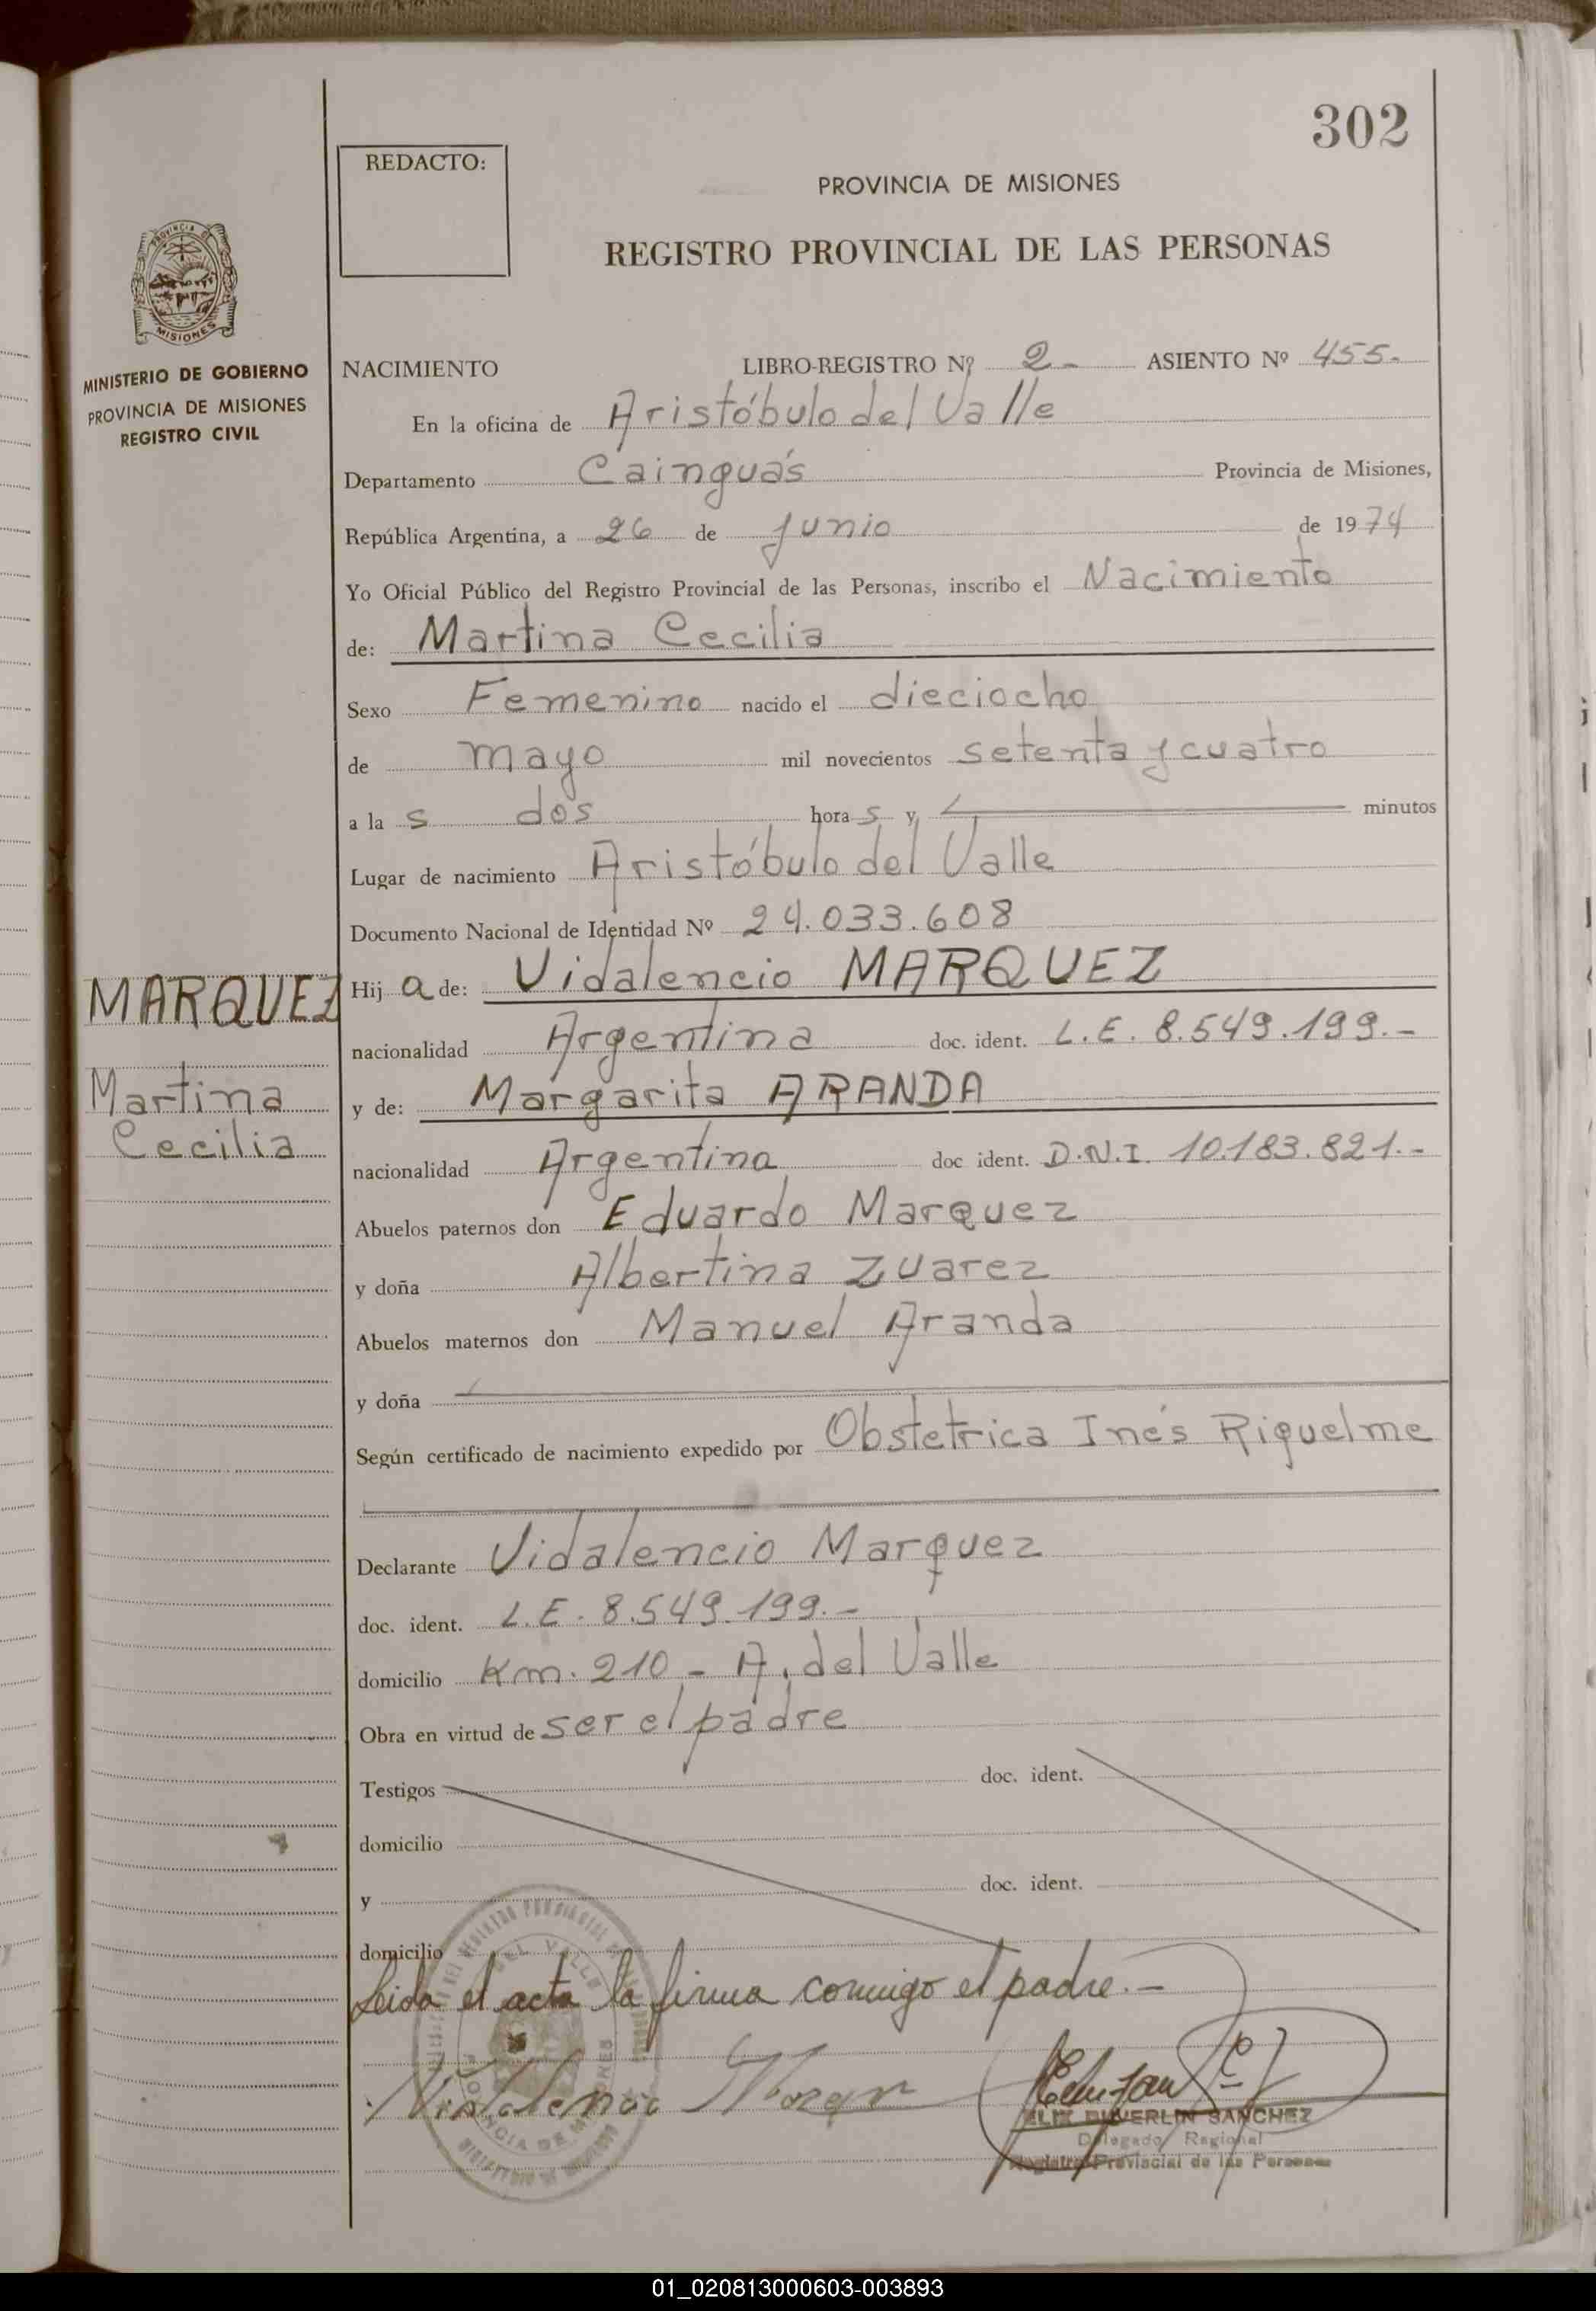 302
REDACTO:
PROVINCIA DE MISIONES
REGISTRO PROVINCIAL DE LAS PERSONAS
PROVINCIA DE
MISIONES
MINISTERIO DE GOBIERNO
PROVINCIA DE MISIONES
REGISTRO CIVIL
NACIMIENTO LIBRO-REGISTRO Nº 2- ASIENTO Nº 455.
En la oficina de Aristóbulo del Valle
Departamento Cainguás Provincia de Misiones,
República Argentina, a 26 de junio de 1974
Yo Oficial Público del Registro Provincial de las Personas, inscribo el Nacimiento
de: Martina Cecilia
Sexo Femenino nacido el dieciocho
de mayo mil novecientos setenta y cuatro
a la s dos hora s y minutos
Lugar de nacimiento Aristóbulo del Valle
Documento Nacional de Identidad Nº 24.033.608
MARQUEZ
Hij a de: Vidalencio MARQUEZ
nacionalidad Argentina doc. ident. L.E. 8.549.199.-
Martina
Cecilia
y de: Margarita ARANDA
nacionalidad Argentina doc ident. D.N.I. 10.183.821.-
Abuelos paternos don Eduardo Marquez
y doña Albertina Zuarez
Abuelos maternos don Manuel Aranda
y doña
Según certificado de nacimiento expedido por Obstetrica Inés Riquelme
Declarante Vidalencio Marquez
doc. ident. L.E. 8.549.199.-
domicilio Km. 210 - A. del Valle
Obra en virtud de ser el padre
Testigos doc. ident.
domicilio
y doc. ident.
domicilio
Leida el acta la firma conmigo el padre.-
SANCHEZ
Delegado Regional
Registro Provincial de las Personas
01_020813000603-003893